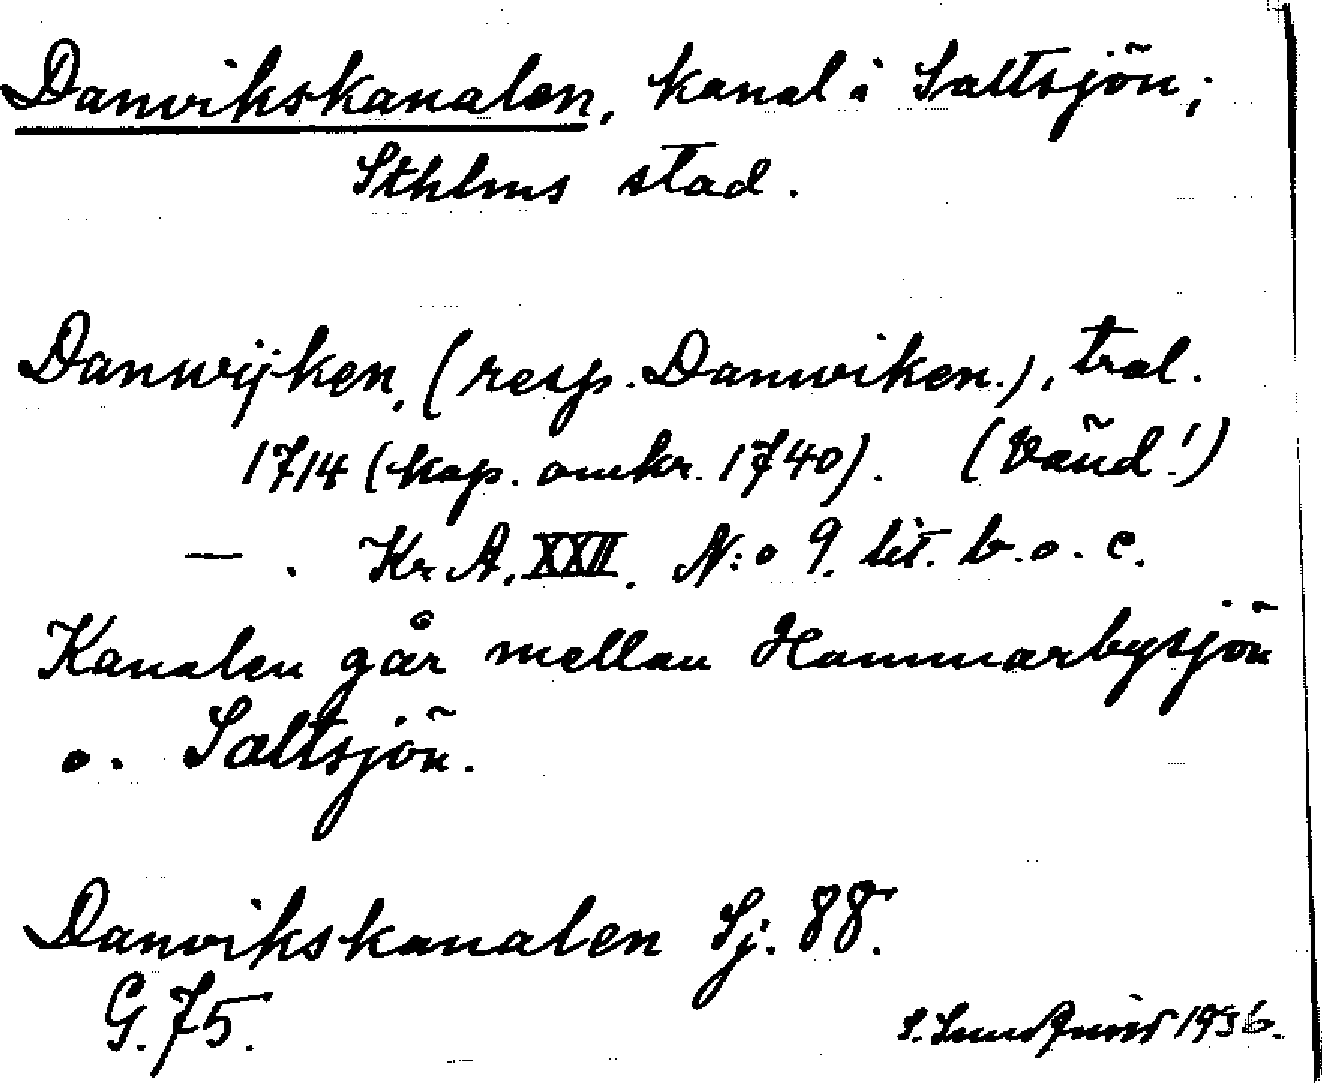 Danvikskanalen, kanal i Saltsjön;
Sthlms stad.
Danwijken, (resp. Danwiken.), tral.
1714 (kop. omkr. 1740). (Vänd!)
— . Kr. A. XXII. N:o 9. lit. b. o. c.
Kanalen går mellan Hammarbysjön
o. Saltsjön.
Danvikskanalen Sj. 88.
G. 75.
S. 1936.